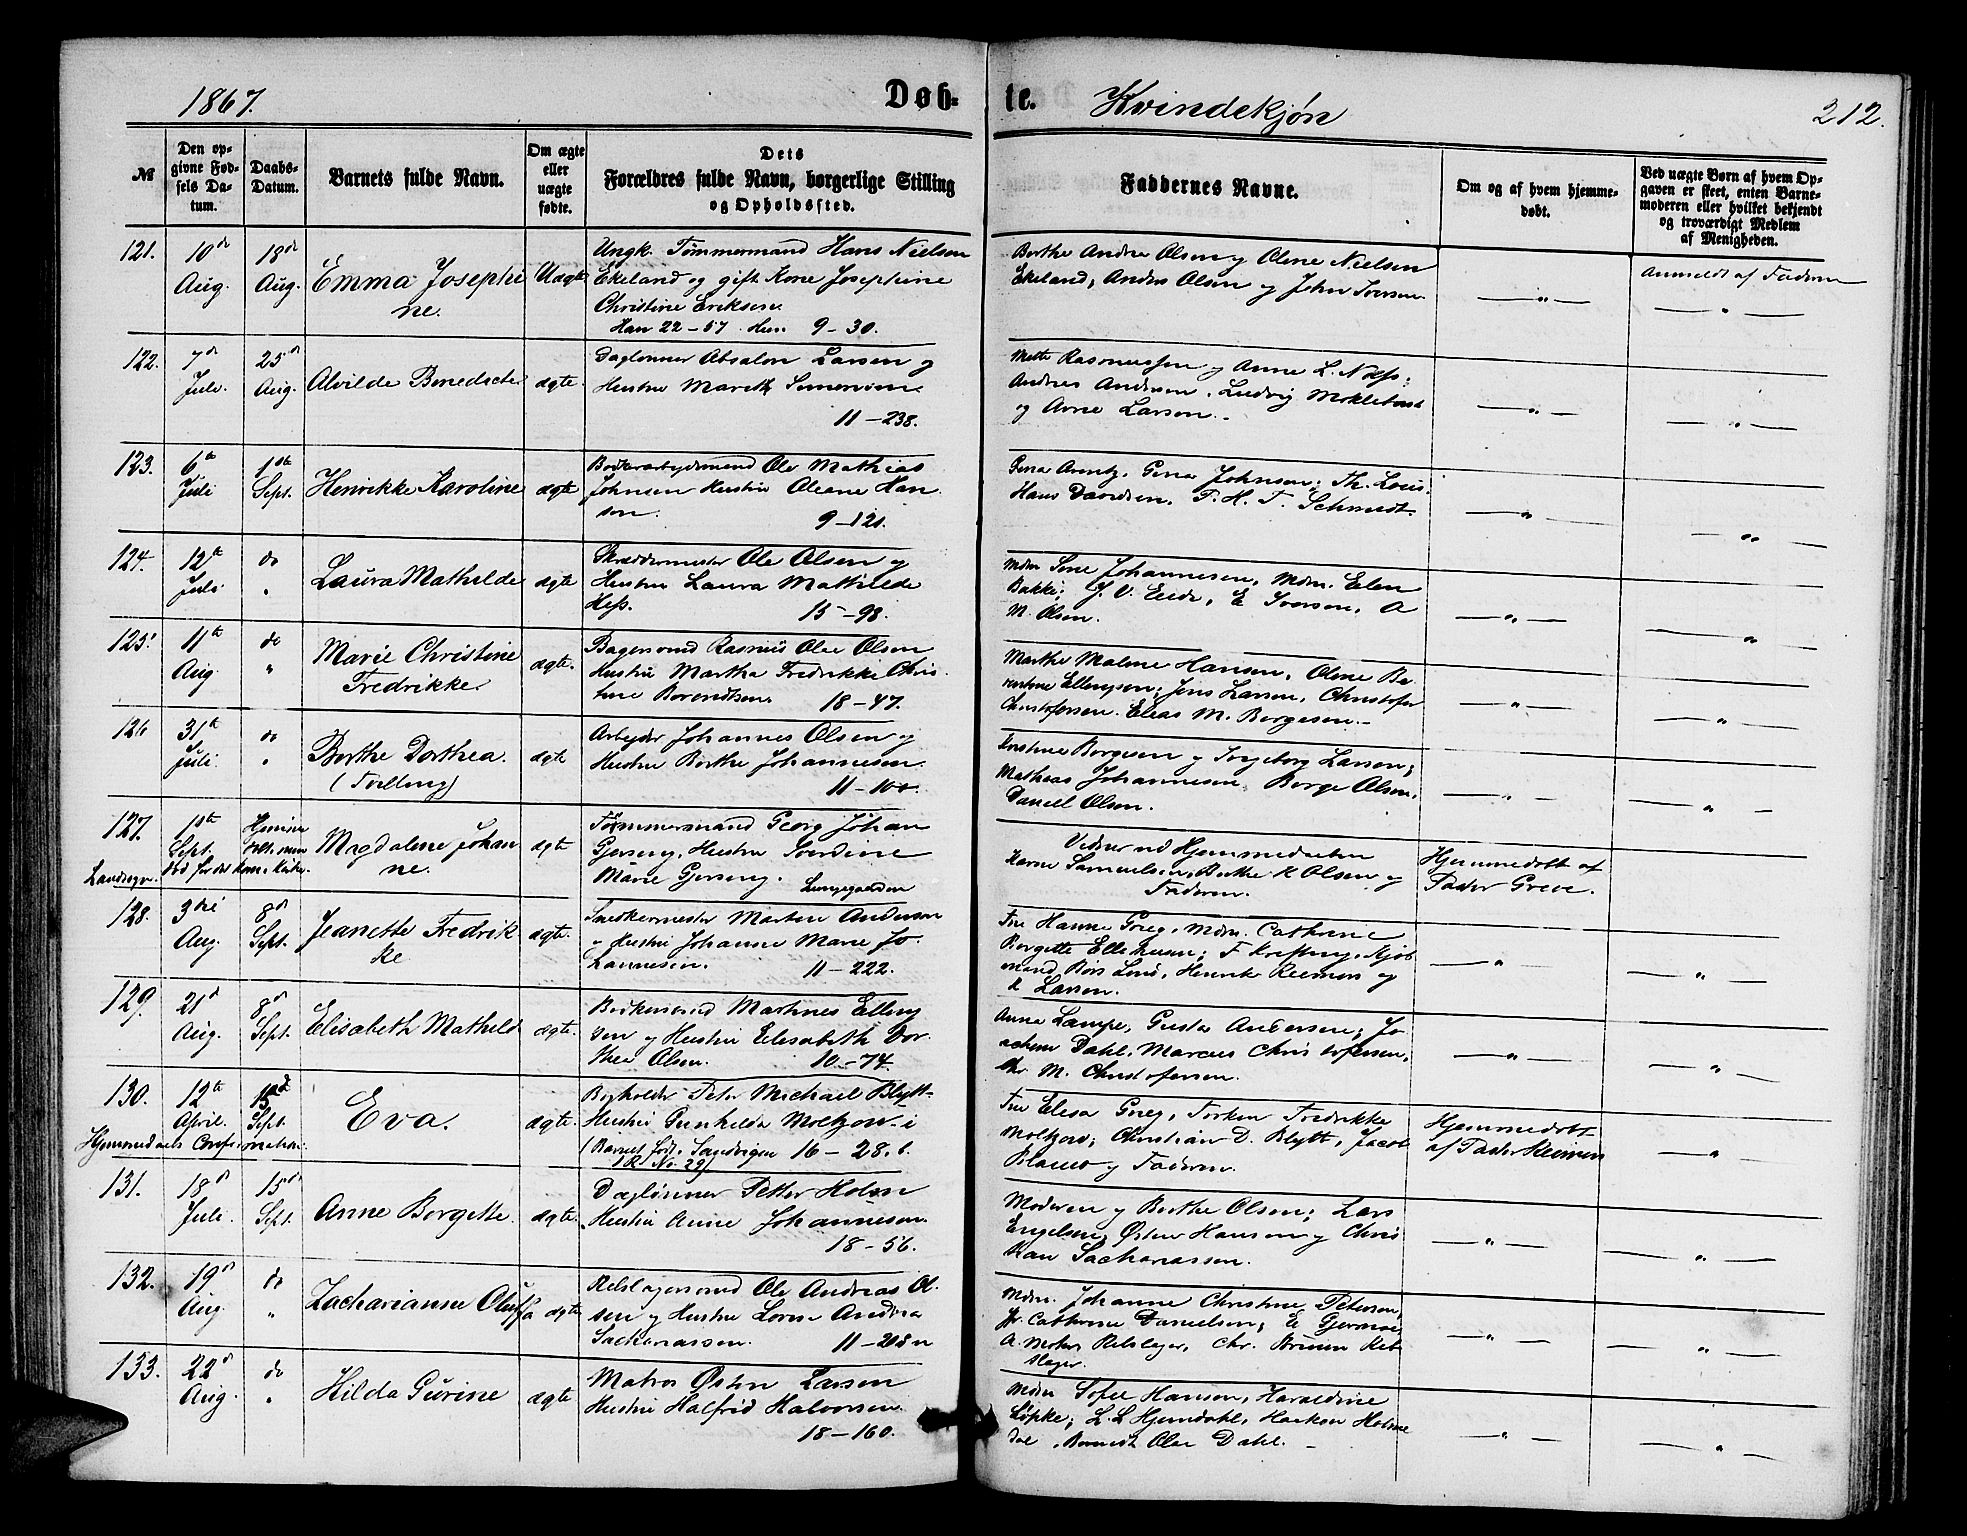 1867.
Døb-
te.
Kvindekjøn
212.
№
Den op-
givne Fød-
sels Da-
tum.
Daabs-
Datum.
Barnets fulde Navn.
Om ægte
eller
uægte
fødte.
Dets
Forældres fulde Navn, borgerlige Stilling
og Opholdssted.
Faddernes Navne.
Om og af hvem hjemme-
døbt.
Ved uægte Børn af hvem Op-
gaven er skeet, enten Barne-
moderen eller hvilket bekjendt
og troværdigt Medlem
af Menigheden.
121.
10de
Aug.
18de
Aug.
Emma Josephi
ne.
Uægte
Ungk. Tømmermand Hans Nielsen
Ekeland og gift Kone Josephine
Christine Eriksen.
Han 22-57. Hun 9-30.
Berthe Andrea Olsen og Olene Nielsen
Ekeland; Anders Olsen og John Iversen
—"—
Anmeldt af Faderen
—"—
122.
7de
Juli.
25de
Aug.
Alvilde Benedicte
ægte.
Daglønner Absalon Larsen og
Hustru Marith Simensen.
11-238.
Mette Rasmussen og Anne L. Næss;
Andreas Andersen, Ludvig Moklebust
og Arne Larsen.
—"—
—"—
123.
6te
Juli
1ste
Sept.
Henrikke Karoline
ægte
Bødkerarbeidsmand Ole Mathias
Johnsen Hustru Oleane Han
sen.
9-121.
Gina Arentz, Gina Johnsen; Th. Louis.
Hans Davidsen, T. H. T. Schmidt.
—"—
—"—
124.
12te
Juli
do
"
Laura Mathilde
ægte
Skræddermester Ole Olsen og
Hustru Laura Mathilde
Hess.
15-98.
Mdm Sine Johannesen, Mdm. Elen
Bakke; J. V. Eide, E Iversen, A
M. Olsen.
—"—
—"—
125.
11te
Aug
do
"
Marie Christine
Fredrikke.
ægte.
Bagersvend Rasmus Olai Olsen
Hustru Martha Fredrikke Chris
tine Berendtsen.
18-47.
Marthe Malene Hansen, Oline Be
rentine Ellingsen; Jens Larsen, Christofer
Christofersen. Elias M. Børgesen.
—"—
—"—
126
31te
Juli.
do
"
Berthe Dorthea.
(Tvilling)
ægte
Arbeider Johannes Olsen og
Hustru Berthe Johannesen.
11-100.
Kristine Børgesen og Ingeborg Larsen;
Mathias Johannesen, Børge Olsen,
Daniel Olsen.
—"—
—"—
127.
1ste
Sept.
Hjemme
død før det kom i Kirke.
Landsogn.
Magdalene Johan
ne.
ægte
Tømmersvend Georg Johan
Gjersing, Hustru Sverdine
Marie Gjersing.
Lungegaarden
Vidner ved Hjemmedaaben
Karne Samuelsen, Berthe K Olsen og
Faderen.
Hjemmedøbt af
Pastor Greve.
128.
3die
Aug.
8de
Sept.
Jeanette Fredrik
ke
ægte.
Snedkermester Morten Andersen
og Hustru Johanne Marie Jo
hannesen.
11-222.
Fru Hanne Greg, Mdm. Cathrine
Bergitte Ellerhusen; F Krefting, Kjøb
mand Børs Lund, Henrik Reimers og
K Larsen.
—"—
—"—
129.
21de
Aug.
8de
Sept.
Elisabeth Mathild
ægte.
Bødkersvend Martines Elling
sen og Hustru Elisabeth Dor
thea Olsen.
10-74.
Anna Lampe, Gusta Andersen; Jo
achim Dahl, Marcus Christofersen,
Chr. M. Christofersen.
—"—
—"—
130.
12te
April.
15de
Sept.
Hjemmedaabs Confirmation.
Eva.
ægte.
Bogholder Peter Michael Blytt
Hustru Gunhilda Moltzow i
(Barnet født i Sandvigen 16-28.b.
1 R. No. 29)
Fru Elisa Greg, Frøken Fredrikke
Moltzow; Christian D. Blytt, Jacob
Blauw og Faderen.
Hjemmedøbt
af Pastor Reimers
—"—
131.
18de
Juli.
15de
Sept.
Anne Bergette.
ægte.
Daglønner Petter Holm
Hustru Anne Johannesen.
18-56.
Moderen og Berthe Olsen; Lars
Engelsen, Østen Hansen og Chris
tian Sachariassen.
—"—
—"—
132.
19de
Aug.
do
"
Zacharianne Oluffa
ægte.
Rebslagersvend Ole Andreas Ol
sen og Hustru Lovise Andrea
Sachariassen.
11-208 n
Mdm. Johanne Christine Petersen,
Jfr. Cathrine Danielsen; E Gjermoe,
A. Mohn Rebslager, Chr. Sørensen Reb
slager.
—"—
—"—
133.
22de
Aug.
do
"
Hilda Gurine
ægte
Matros Østen Larsen
Hustru Halfrid Halvorsen.
18-160.
Mdm Sofie Hansen, Haraldine
Løpke; L. L Hjemdahl, Haekon Holme
dal, Berendt Olai Dahl.
—"—
—"—